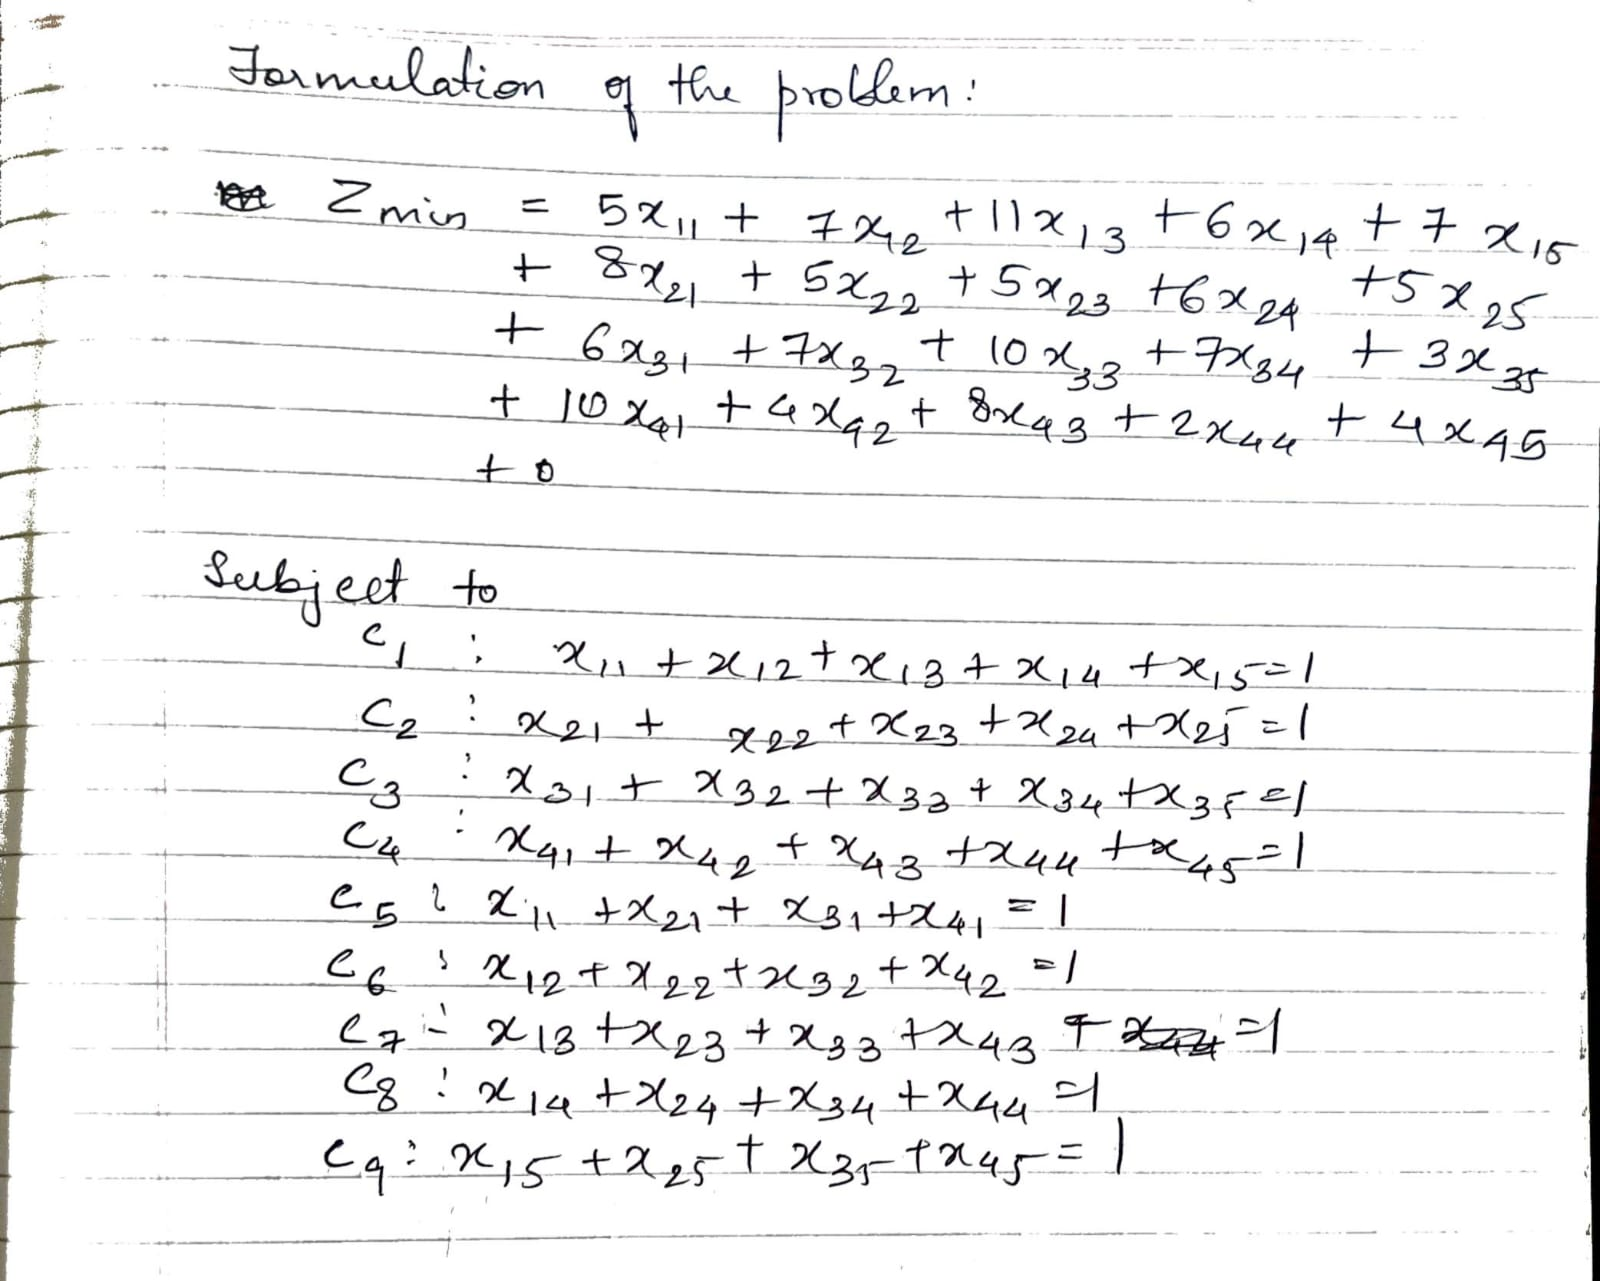 Formulation of the problem:
Z min = 5x11 + 7x12 + 11x13 + 6x14 + 7x15
+ 8x21 + 5x22 + 5x23 + 6x24 + 5x25
+ 6x31 + 7x32 + 10x33 + 7x34 + 3x35
+ 10x41 + 4x42 + 8x43 + 2x44 + 4x45
+ 0
Subject to
C1 : x11 + x12 + x13 + x14 + x15 = 1
C2 : x21 + x22 + x23 + x24 + x25 = 1
C3 : x31 + x32 + x33 + x34 + x35 = 1
C4 : x41 + x42 + x43 + x44 + x45 = 1
C5 : x11 + x21 + x31 + x41 = 1
C6 : x12 + x22 + x32 + x42 = 1
C7 : x13 + x23 + x33 + x43 + x44 = 1
C8 : x14 + x24 + x34 + x44 = 1
C9 : x15 + x25 + x35 + x45 = 1